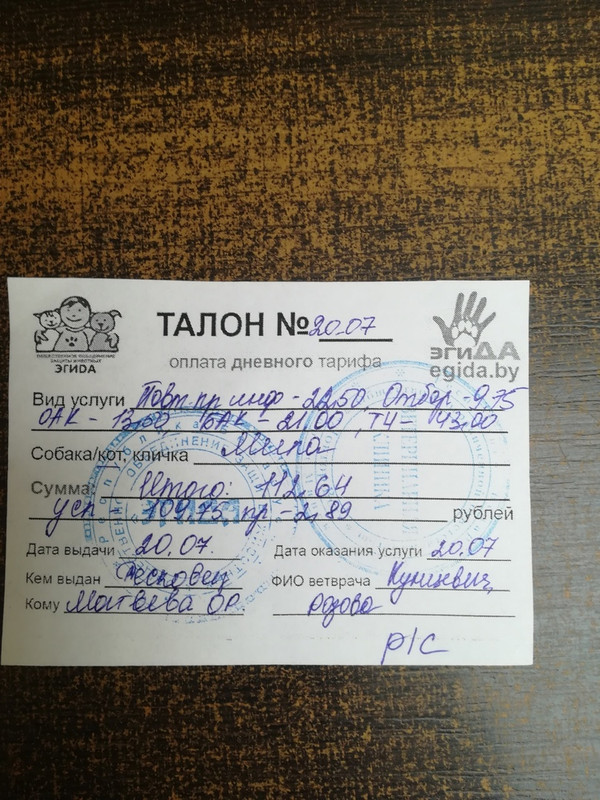 ТАЛОН № 20.07
ОБЩЕСТВЕННОЕ ОБЪЕДИНЕНИЕ
ЗАЩИТЫ ЖИВОТНЫХ
ЭГИДА
эгиДА
egida.by
оплата дневного тарифа
Вид услуги Повт.пр.инф - 22,50 Отбор - 9,75
ОАК - 13,50 БАК - 21,00, Т4 - 43,00
Собака/кот, кличка
Сумма: Итого: 112,64
усл 109,75 пр - 2,89 рублей
Дата выдачи 20.07. Дата оказания услуги 20.07
Кем выдан ФИО ветврача
Кому Матвеева ОР
р/с